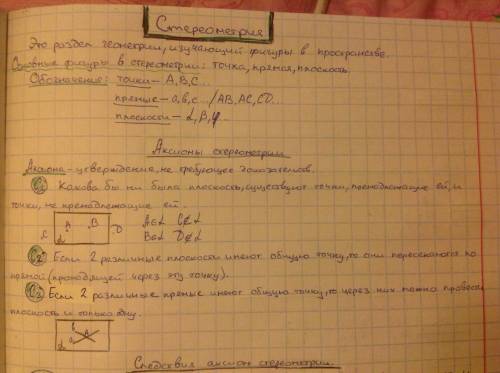 Стереометрия
Это раздел геометрии, изучающий фигуры в пространстве.
Основные фигуры в стереометрии: точка, прямая, плоскость
Обозначение: точки – A, B, C...
прямые – a, b, c... / AB, AC, CD...
плоскости – α, β, φ...
Аксиомы стереометрии
Аксиома – утверждение, не требующее доказательств.
C1 Какова бы ни была плоскость, существуют точки, пренадлежащие ей, и
точки, не пренадлежащие ей.
C A B D A∈α C∉α
α B∈α D∉α
C2 Если 2 различные плоскости имеют общую точку, то они пересекаются по
прямой (проходящей через эту точку).
C3 Если 2 различные прямые имеют общую точку, то через них можно провести
плоскость и только одну.
b A
α a
Следствия аксиом стереометрии.